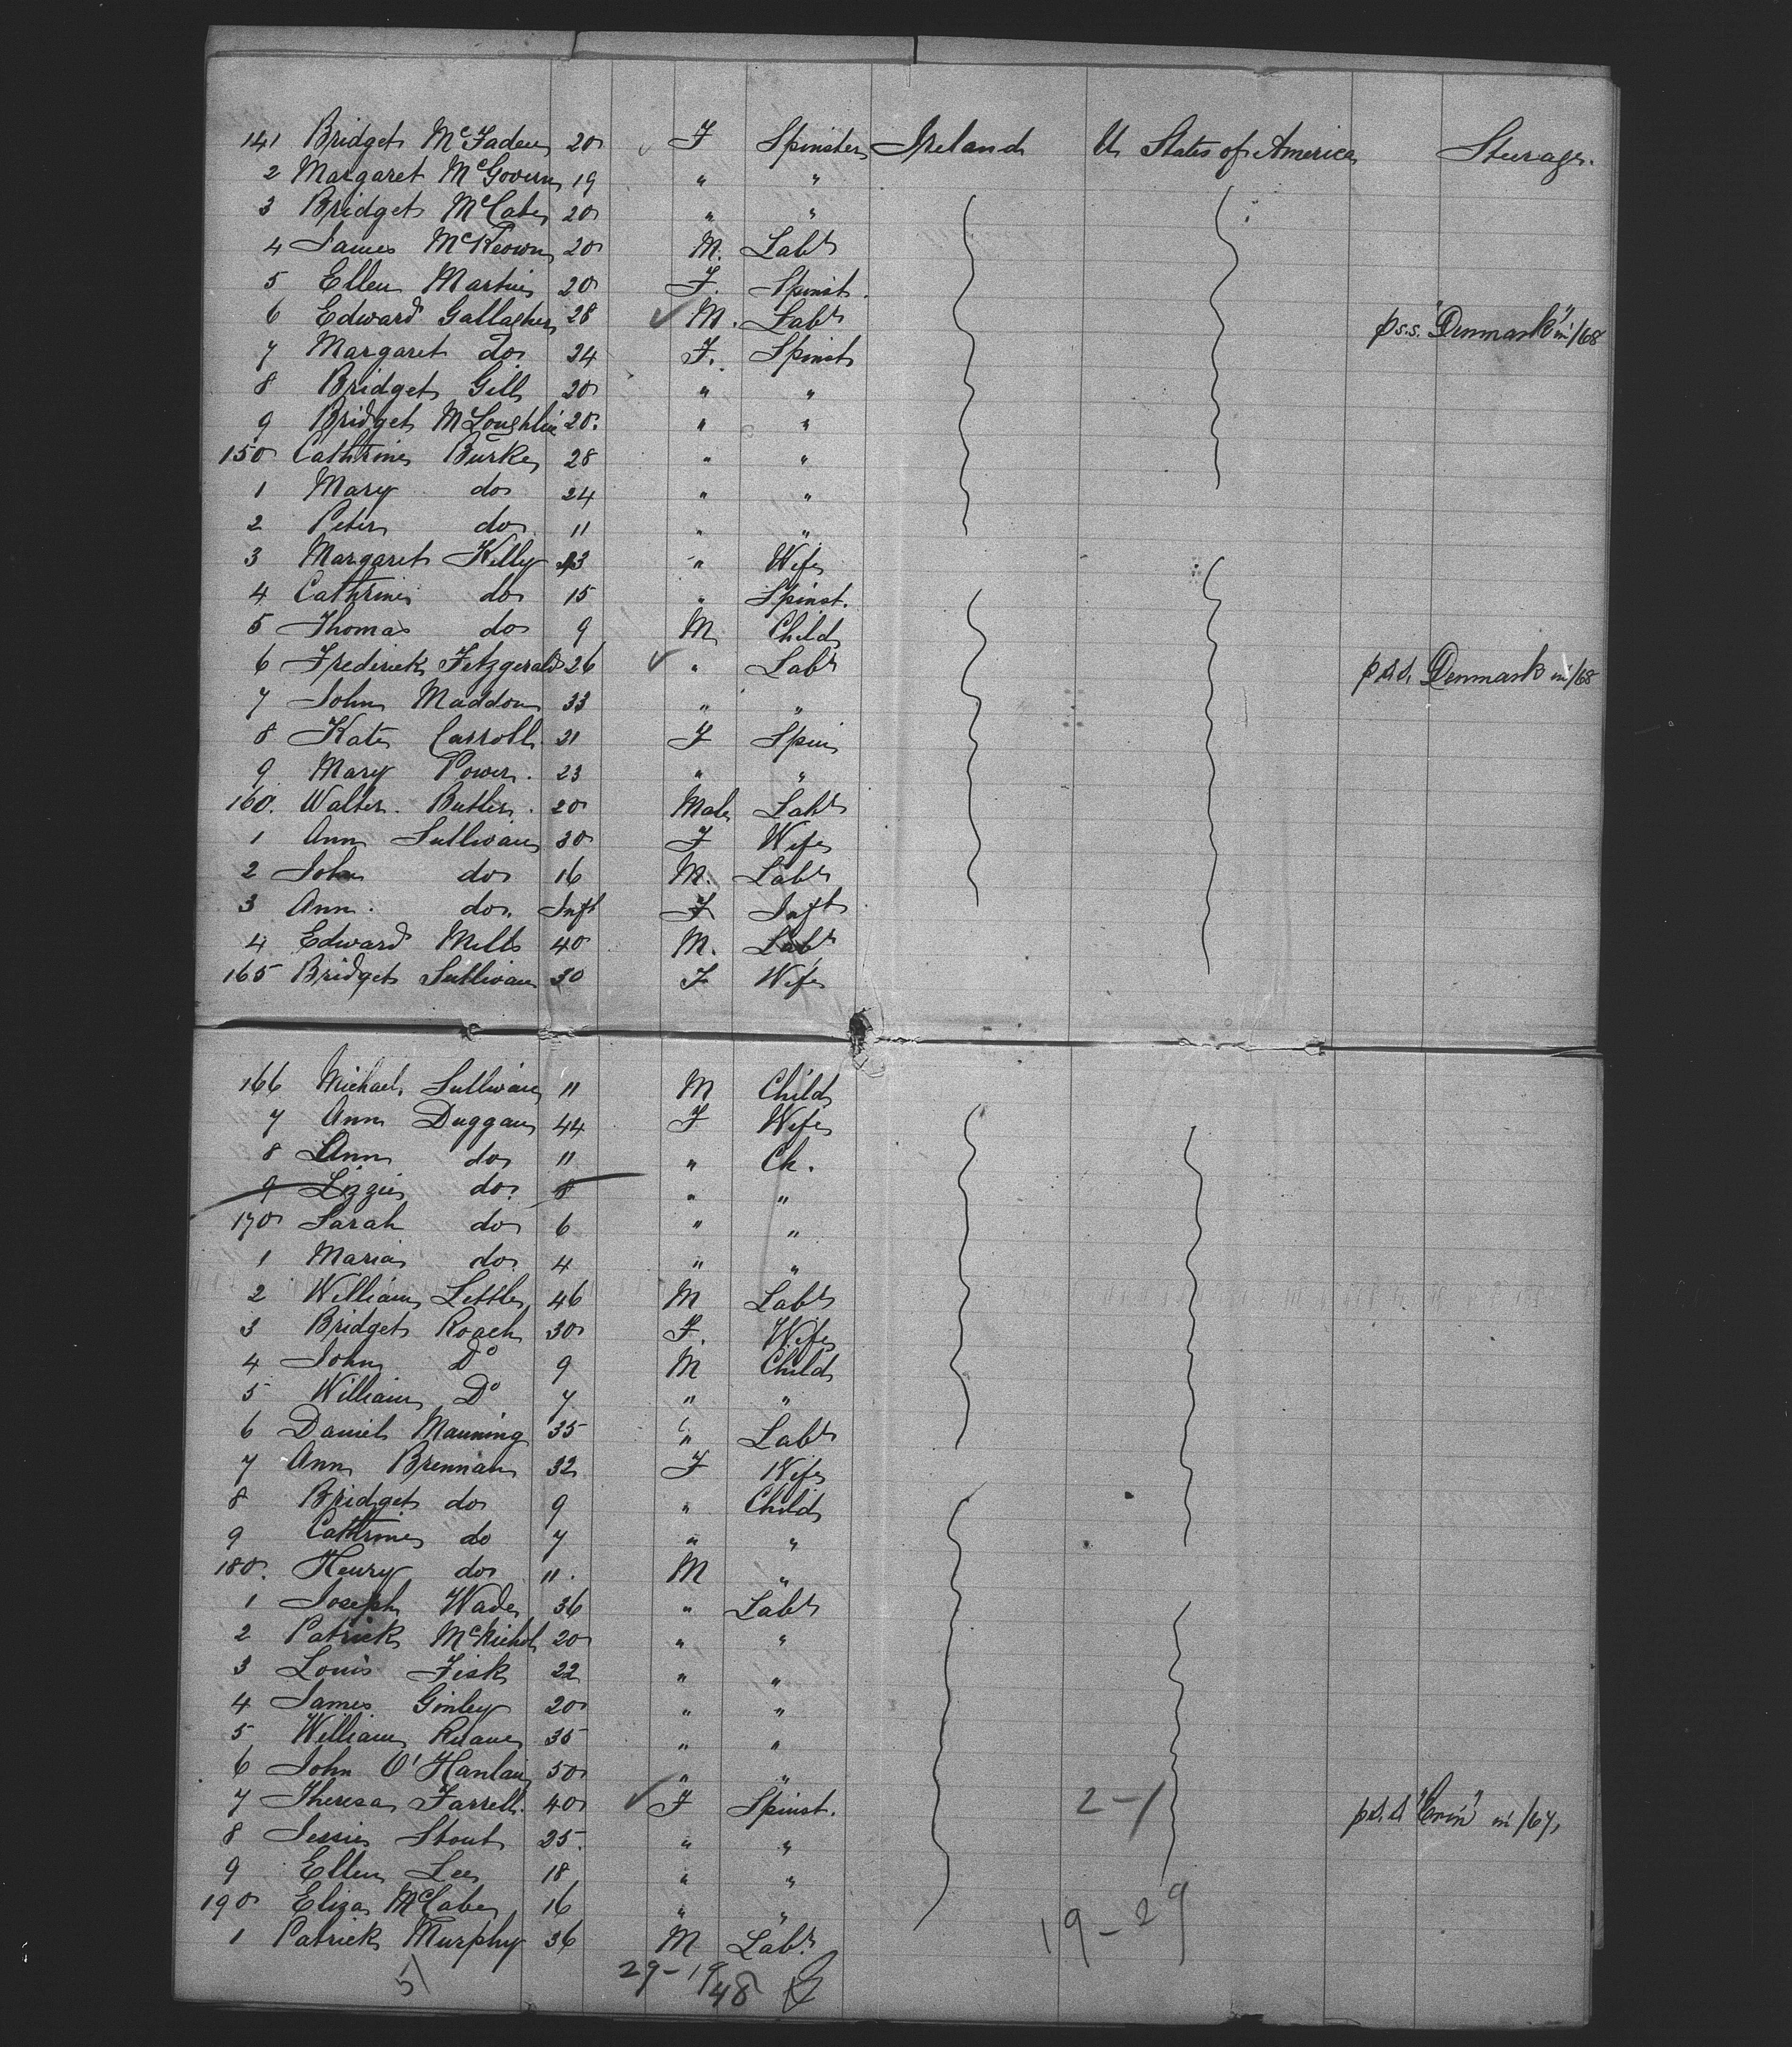 141 Bridget McFaden 20 F Spinster Ireland U States of America Steerage.
2 Margaret McGovern 19 " "
3 Bridget McCabe 20 " "
4 James McKeown 20 M. Labr
5 Ellen Martin 20 F. Spinst.
6 Edward Gallagher 28 ✓ M. Labr p s.s. "Denmark" in /68
7 Margaret do 24 F. Spinst
8 Bridget Gill 20 " "
9 Bridget McLoughlin 20. " "
150 Cathrine Burke 28 " "
1 Mary do 24 " "
2 Peter do 11 " "
3 Margaret Kelly 43 " Wife
4 Cathrine do 15 " Spinst.
5 Thomas do 9 M Child
6 Frederick Fitzgerald 26 ✓ " Labr p s.s. Denmark in /68
7 John Maddon 33 " "
8 Kate Carroll 21 F Spin
9 Mary Power. 23 " "
160. Walter. Butler. 20 Male Labr
1 Ann Sullivan 30 F Wife
2 John do 16 M. Labr
3 Ann. do. Inft F Inft
4 Edward Mills 40 M. Labr
165 Bridget Sullivan 30 F Wife
166 Michael Sullivan 11 M Child
7 Ann Duggan 44 F Wife
8 Ann do 11 " Ch.
9 Lizzie do. 8 " "
170 Sarah do 6 " "
1 Maria do. 4 " "
2 William Little 46 M Labr
3 Bridget Roach 30 F. Wife
4 John Do 9 M Child
5 William Do 7 " "
6 Daniel Manning 35 " Labr
7 Ann Brennan 32 F Wife
8 Bridget do 9 " Child
9 Cathrine do 7 " "
180. Henry do 11. M "
1 Joseph Wade 36 " Labr
2 Patrick McNichol 20 " "
3 Louis Fisk 22 " "
4 James Ginley 20 " "
5 William Ruane 35 " "
6 John O'Hanlan 50 " "
7 Theresa Farrell. 40 ✓ F Spinst. 2-1 p s.s. "Erin" in /67,
8 Jessie Stout 25. " "
9 Ellen Lee 18 " "
190 Eliza McCabe 16 " "
1 Patrick Murphy 36 M Labr. 19-29
51 29-19 48